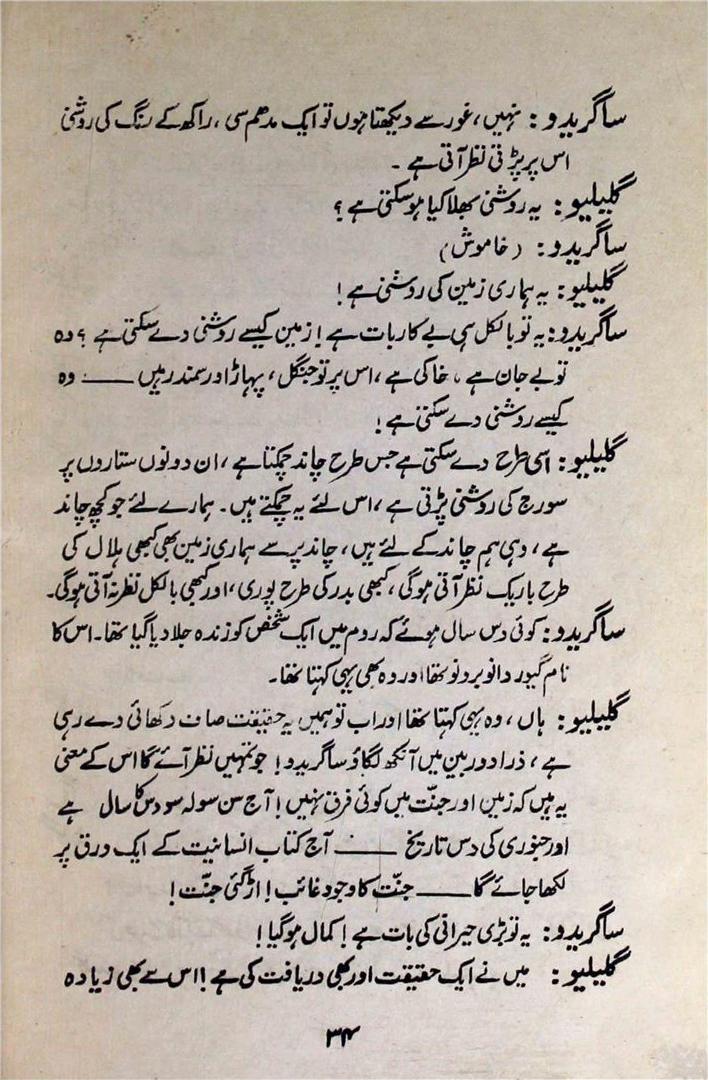 ساگریدو: نہیں، غور سے دیکھتا ہوں تو ایک مدھم سی، راکھ کے رنگ کی روشنی
اس پر پڑتی نظر آتی ہے ۔
گلیلیو: یہ روشنی بھلا کیا ہو سکتی ہے ؟
ساگریدو: (خاموش)
گلیلیو: یہ ہماری زمین کی روشنی ہے !
ساگریدو: یہ تو بالکل ہی بے کار بات ہے ! زمین کیسے روشنی دے سکتی ہے ؟ وہ
تو بے جان ہے ، خاکی ہے ، اس پر تو جنگل ، پہاڑ اور سمندر ہیں ـــــ وہ
کیسے روشنی دے سکتی ہے !
گلیلیو: اسی طرح دے سکتی ہے جس طرح چاند چمکتا ہے ، ان دونوں ستاروں پر
سورج کی روشنی پڑتی ہے ، اس لئے یہ چمکتے ہیں۔ ہمارے لئے جو کچھ چاند
ہے ، وہی ہم چاند کے لئے ہیں ، چاند پر سے ہماری زمین بھی کبھی ہلال کی
طرح باریک نظر آتی ہوگی ، کبھی بدر کی طرح پوری ، اور کبھی بالکل نظر نہ آتی ہوگی۔
ساگریدو: کوئی دس سال ہوئے کہ روم میں ایک شخص کو زندہ جلا دیا گیا تھا۔ اس کا
نام گیور دانو برونو تھا اور وہ بھی یہی کہتا تھا۔
گلیلیو: ہاں ، وہ یہی کہتا تھا اور اب تو ہمیں یہ حقیقت صاف دکھائی دے رہی
ہے ، ذرا دوربین میں آنکھ لگاؤ ساگریدو ! جو تمہیں نظر آئے گا اس کے معنی
یہ ہیں کہ زمین اور جنّت میں کوئی فرق نہیں ! آج سن سولہ سو دس کا سال ہے
اور جنوری کی دس تاریخ ـــــ آج کتاب انسانیت کے ایک ورق پر
لکھا جائے گا ـــــ جنّت کا وجود غائب ! اڑ گئی جنّت !
ساگریدو: یہ تو بڑی حیرانی کی بات ہے ! کمال ہو گیا !
گلیلیو: میں نے ایک حقیقت اور بھی دریافت کی ہے ! اس سے بھی زیادہ
۳۴